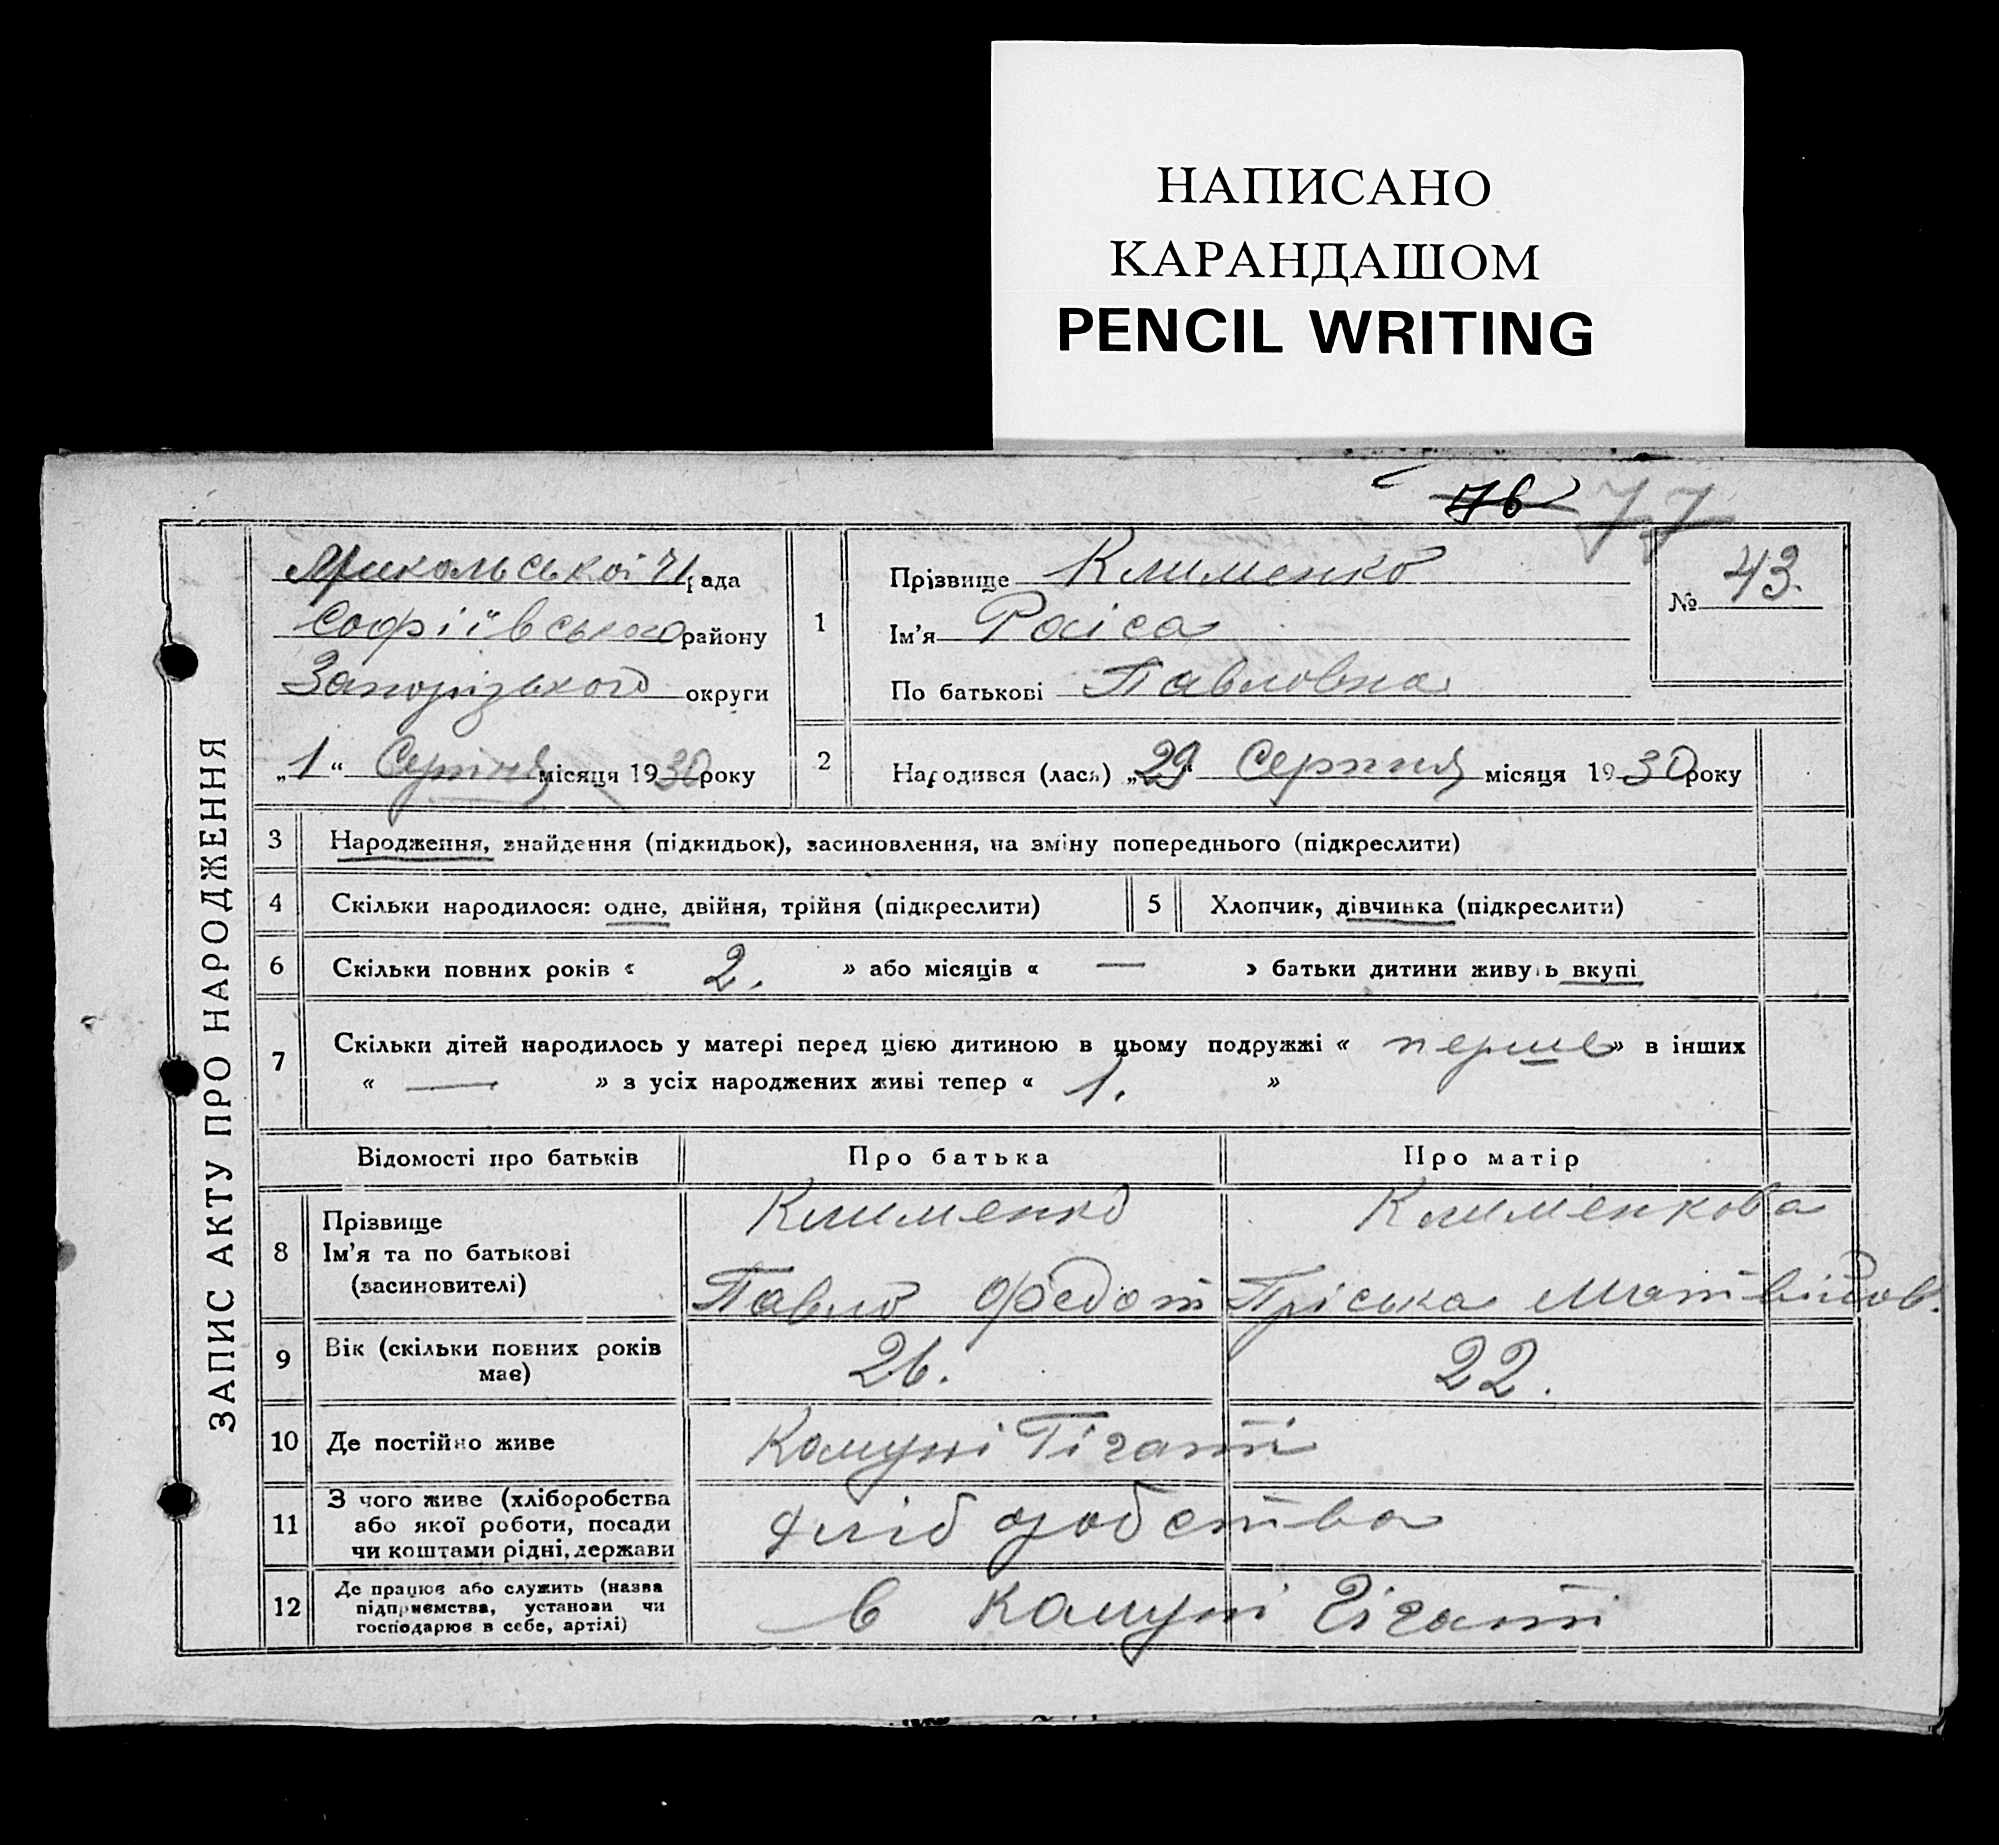 НАПИСАНО
КАРАНДАШОМ
PENCIL WRITING
76 77
ЗАПИС АКТУ ПРО НАРОДЖЕННЯ
рада
Софіївського району
Запорізького округи
„1“ Серпня місяця 1930 року
1 Прізвище Клименко
Ім'я Раіса
По батькові Павловна
№ 43.
2 Народився (лася) „29“ Серпня місяця 1930 року
3 Народження, знайдення (підкидьок), засиновлення, на зміну попереднього (підкреслити)
4 Скільки народилося: одне, двійня, трійня (підкреслити) 5 Хлопчик, дівчинка (підкреслити)
6 Скільки повних років « 2. » або місяців « — » батьки дитини живуть вкупі
7 Скільки дітей народилось у матері перед цією дитиною в цьому подружжі « перше » в інших
« — » з усіх народжених живі тепер « 1. »
Відомості про батьків Про батька Про матір
8 Прізвище
Ім'я та по батькові
(засиновителі)
Клименко Клименкова
Павло Федот Пріська Матвійов.
9 Вік (скільки повних років
має) 26. 22.
10 Де постійно живе Комуні Гіганті
11 З чого живе (хліборобства
або якої роботи, посади
чи коштами рідні, держави
хліборобства
12 Де працює або служить (назва
підприємства, установи чи
господарює в себе, артілі)
в комуні Гіганті